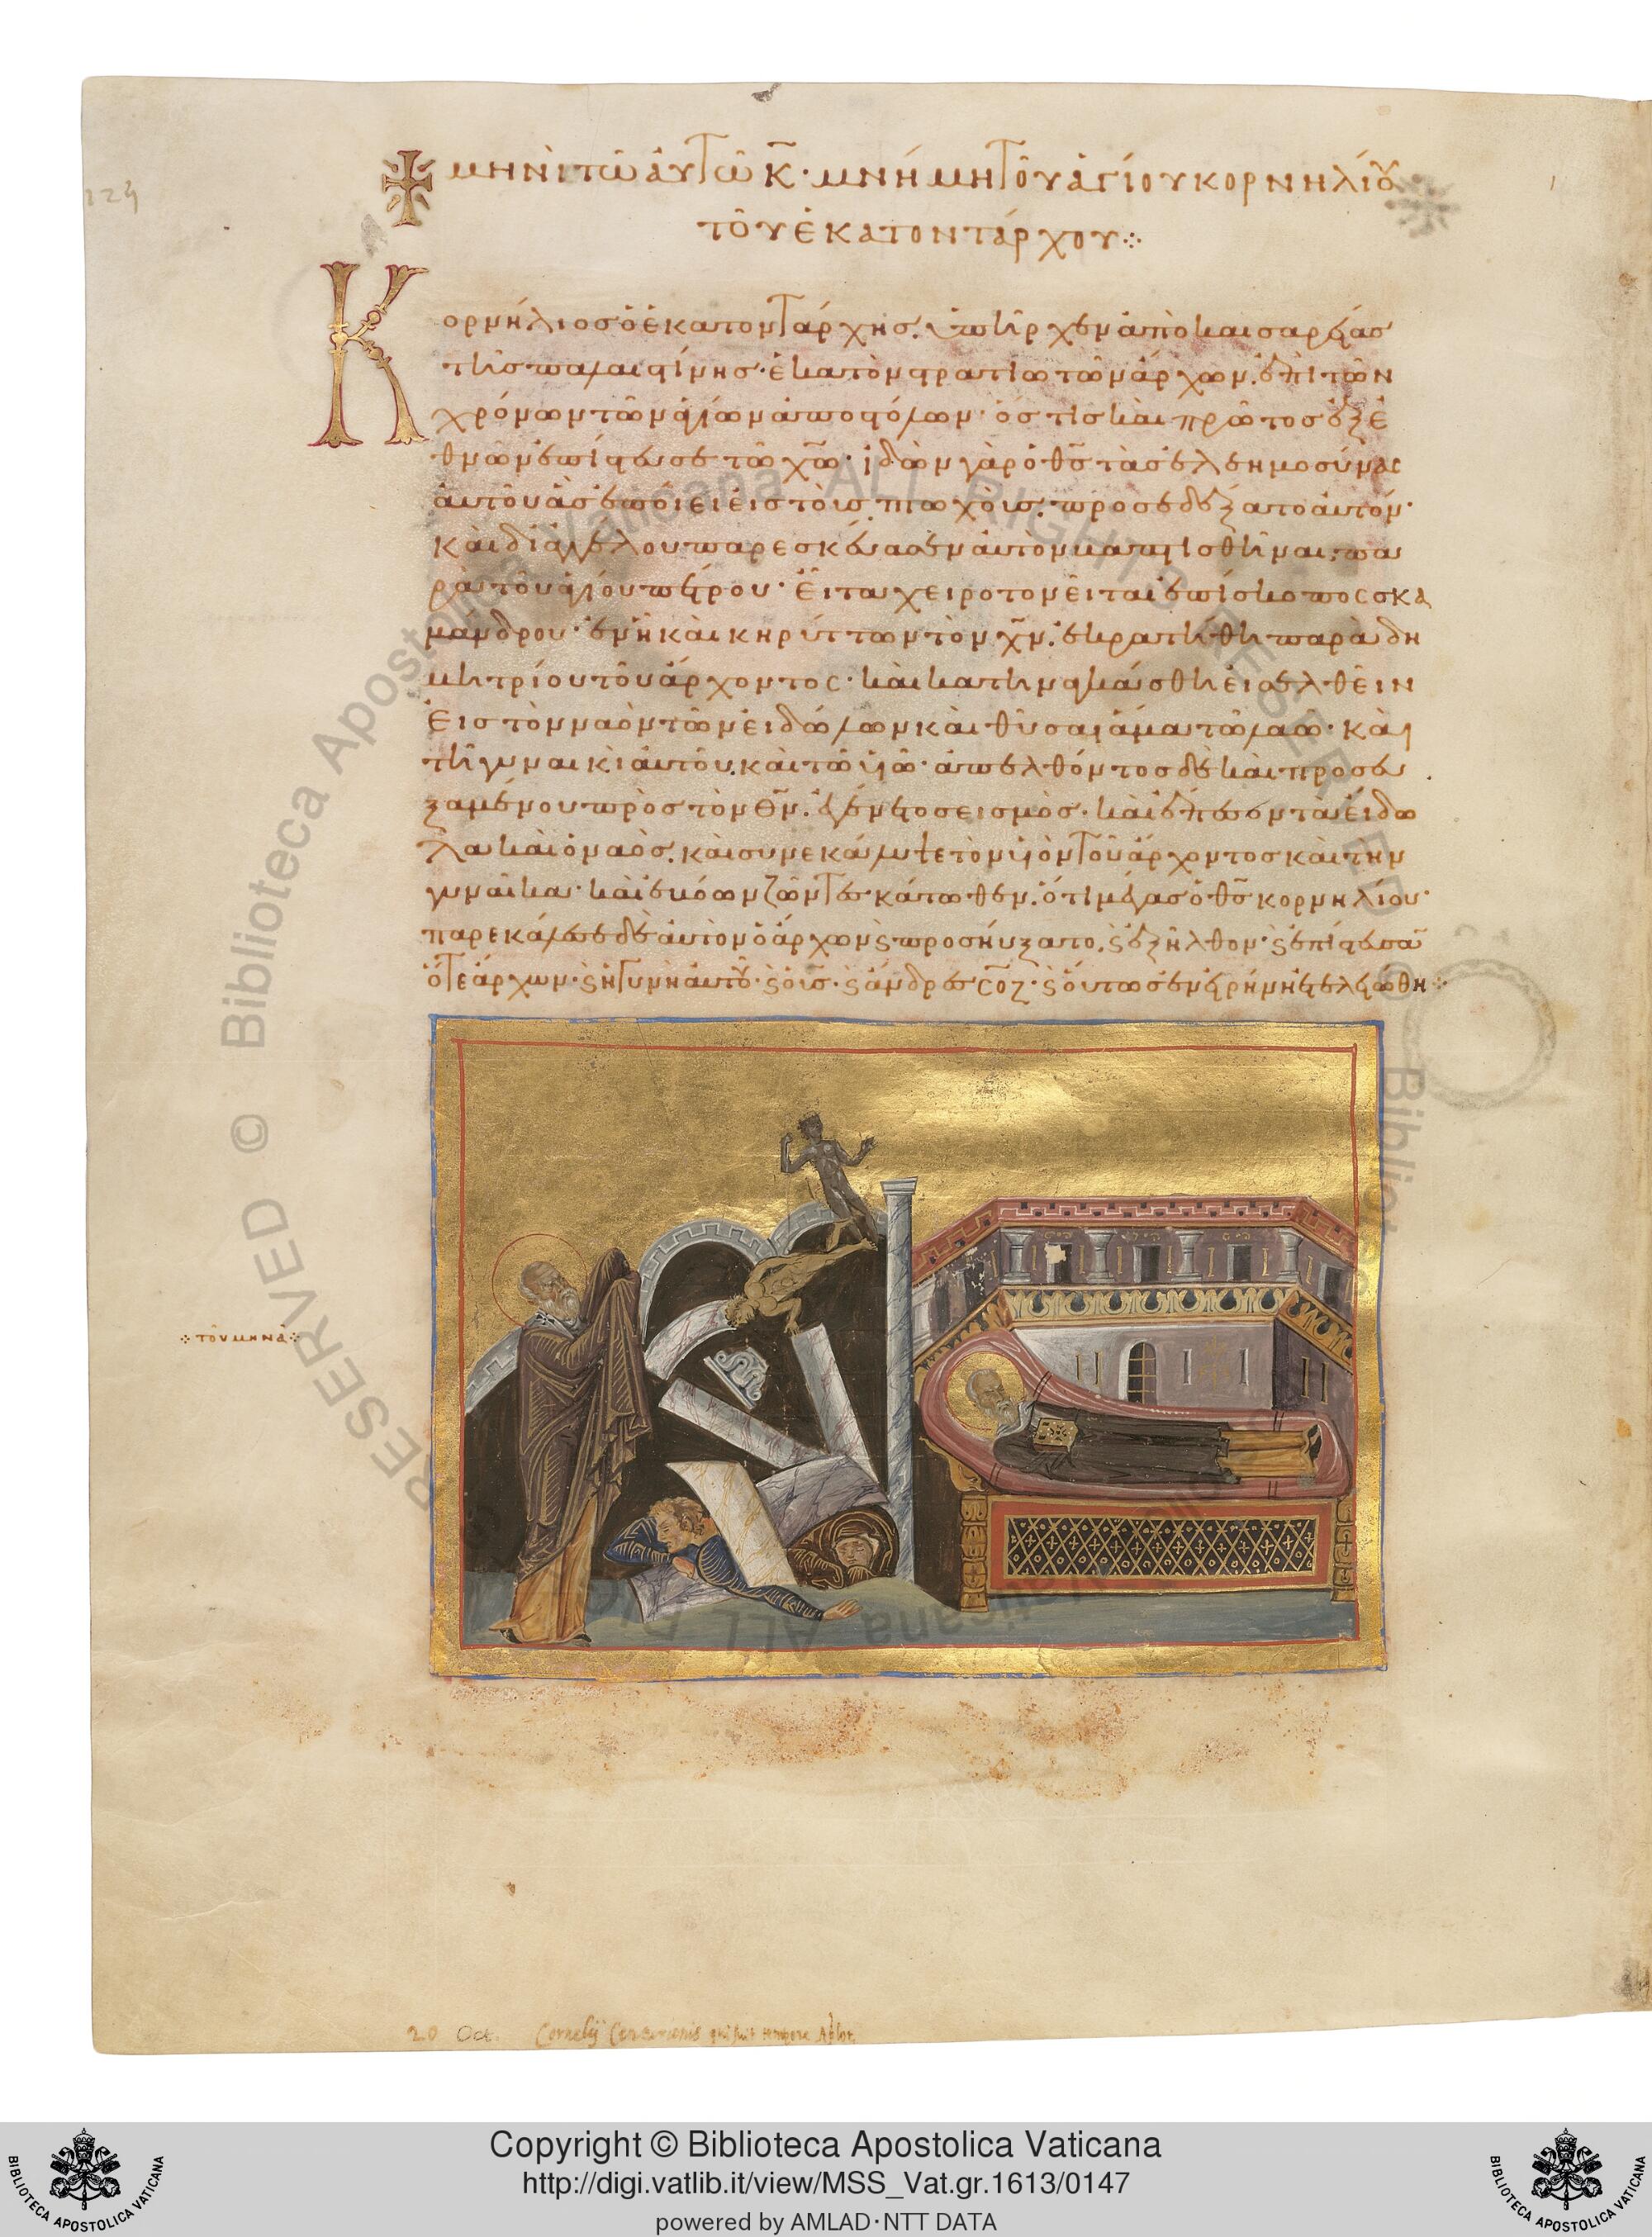 μηνὶ τῶ αὐτῶ κ̅· μνήμη τοῦ ἁγίου κορνηλίου
τοῦ ἑκατοντάρχου
Κορνήλιος ὁ ἑκατοντάρχης. ὑπῆρχεν ἀπὸ καισαρείας
τῆς παλαιστίνης· ἑκατὸν στρατιωτῶν ἄρχων. ἐπὶ τῶν
χρόνων τῶν ἁγίων ἀποστόλων· ὅς τις καὶ πρῶτος ἐξ ἐ
θνῶν ἐπίστευσε τῶ χ̅ω̅· ἰδὼν γὰρ ὁ θ̅ς̅ τὰς ἐλεημοσύνας
αὐτοῦ ἃς ἐποίει εἰς τοὺς πτωχοὺς. προσεδέξατο αὐτόν·
καὶ δι' ἀγγέλου παρεσκεύασεν αὐτὸν βαπτισθῆναι. πα
ρὰ τοῦ ἁγίου πέτρου· εἶτα χειροτονεῖται ἐπίσκοπος σκα
μάνδρου· ἐν ἧ καὶ κηρύττων τὸν χ̅ν̅. ἐκρατήθη παρὰ δη
μητρίου τοῦ ἄρχοντος· καὶ κατηναγκάσθη εἰσελθεῖν
εἰς τὸν ναὸν τῶν εἰδώλων καὶ θῦσαι ἅμα τῶ λαῶ· καὶ
τῆ γυναικὶ αὐτοῦ. καὶ τῶ υἱῶ· ἀπελθόντος δὲ καὶ προσευ
ξαμένου πρὸς τὸν θ̅ν̅. ἐγένετο σεισμὸς· καὶ ἔπεσον τὰ εἴδω
λα καὶ ὁ ναὸς. καὶ συνεκάλυψε τὸν υἱὸν τοῦ ἄρχοντος καὶ τὴν
γυναῖκα· καὶ ἐβόων ζῶντες κάτωθεν. ὅτι μέγας ὁ θ̅ς̅ κορνηλίου·
παρεκάλεσε δὲ αὐτὸν ὁ ἄρχων ϗ προσηύξατο. ϗ ἐξῆλθον· ϗ ἐπίστευσαν
ὅ τε ἄρχων· ϗ ἡ γυνὴ αὐτοῦ· ϗ ὁ υἱς· ϗ ἄνδρες σ̅ο̅ζ̅· ϗ οὕτως ἐν εἰρήνη ἐτελειώθη
τοῦ μηνᾶ
20 Oct. Cornelij Centurionis qui fuit tempore Aplor.
© Biblioteca Apostolica Vaticana ALL RIGHTS RESERVED
Copyright © Biblioteca Apostolica Vaticana
http://digi.vatlib.it/view/MSS_Vat.gr.1613/0147
powered by AMLAD·NTT DATA
BIBLIOTECA APOSTOLICA VATICANA
BIBLIOTECA APOSTOLICA VATICANA